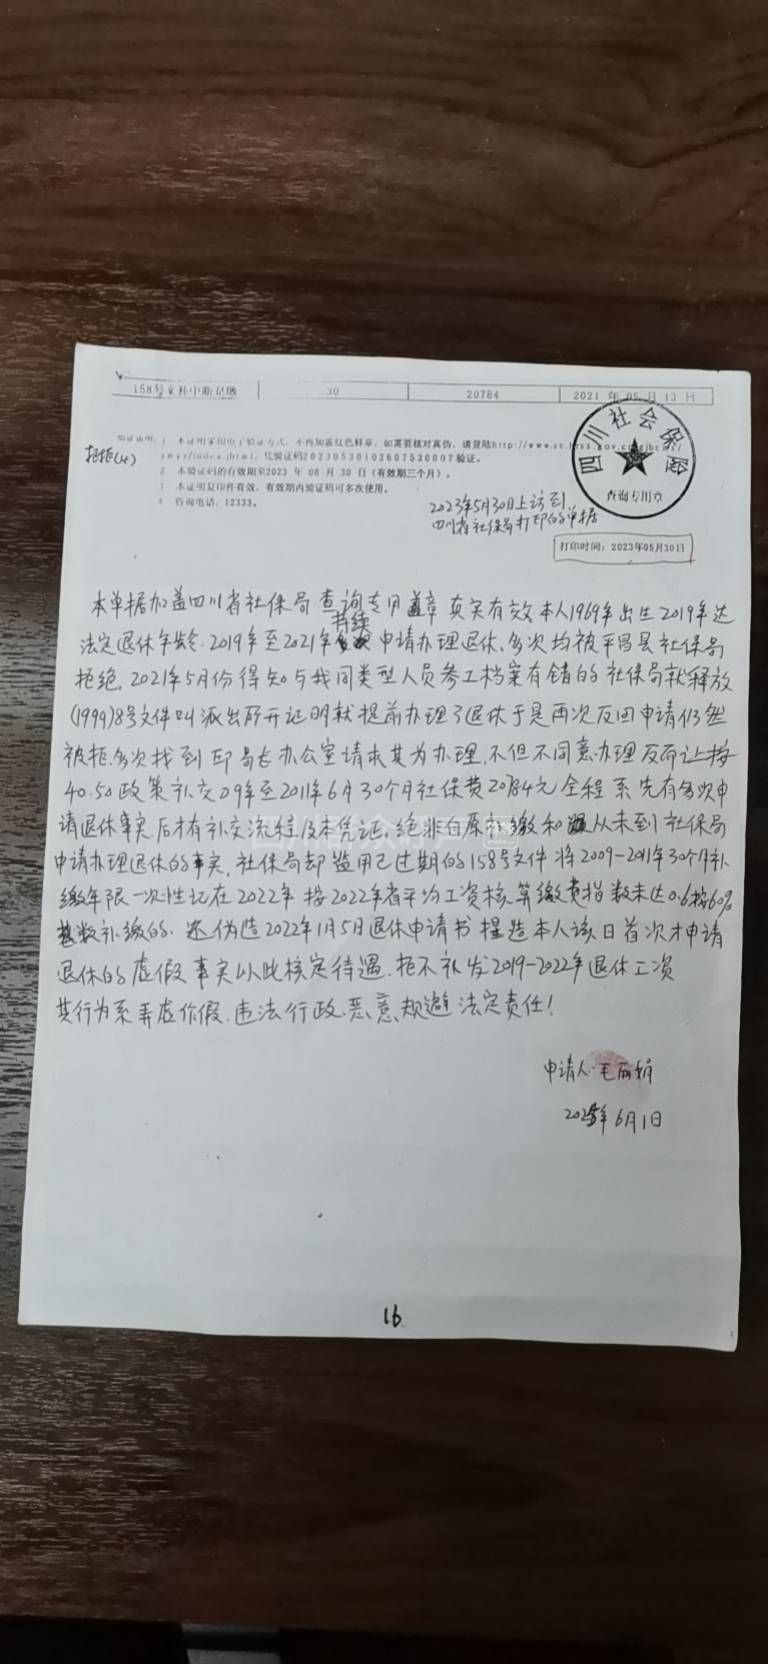 158号文补中断足缴 30 20784 2021 年 05 月 13 日
验证说明: 1 本证明采用电子验证方式,不再加盖红色鲜章。如需要核对真伪,请登陆http://www.sc.hrss.gov.cn/
index.jhtml,凭验证码20230530102607530007验证。
2 本验证码的有效期至2023 年 08 月 30 日(有效期三个月)。
3 本证明复印件有效,有效期内验证码可多次使用。
4 咨询电话:12333。
四川社会保险
查询专用章
2023年5月30日上访到
四川省社保局打印的单据
打印时间:2023年05月30日
本单据加盖四川省社保局查询专用盖章真实有效本人1969年出生2019年达
法定退休年龄.2019年至2021年持续申请办理退休、多次均被平昌县社保局
拒绝,2021年5月份得知与我同类型人员参工档案有错的社保局就释放
(1999)8号文件叫派出所开证明就提前办理了退休于是再次反回申请仍然
被拒.多次找到邱局长办公室请求其为办理,不但不同意办理反而让按
40.50政策补交09年至2011年6月30个月社保费20784元全程系先有多次申
请退休事实后才有补交流程及本凭证,绝非自原补缴和从未到社保局
申请办理退休的事实,社保局却监用已过期的158号文件将2009-2011年30个月补
缴年限一次性记在2022年按2022年省平均工资核算缴费指数未达0.6按60%
基数补缴的.还伪造2022年1月5日退休申请书捏造本人该日首次才申请
退休的虚假事实以此核定待遇.拒不补发2019-2022年退休工资
其行为系弄虚作假.违法行政.恶意规避法定责任!
申请人:毛丽娟
2025年6月1日
16